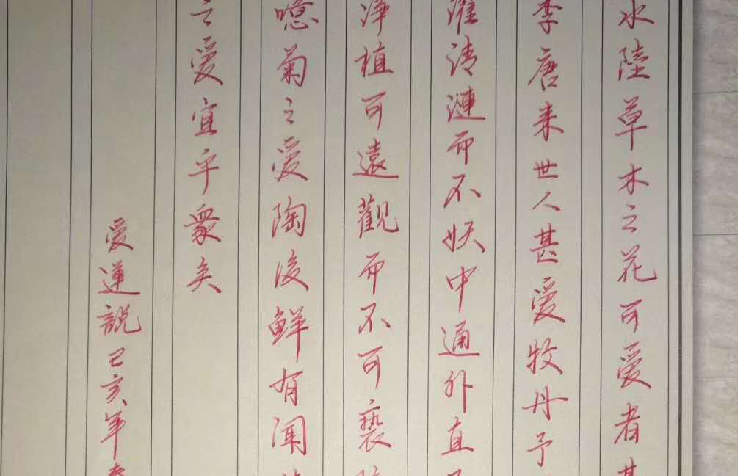 水陸草木之花可愛者甚
李唐来世人甚爱牧丹予
濯清漣而不妖中通外直
淨植可遠觀而不可褻
噫菊之爱陶後鮮有闻
之爱宜乎衆矣
爱蓮説己亥年春